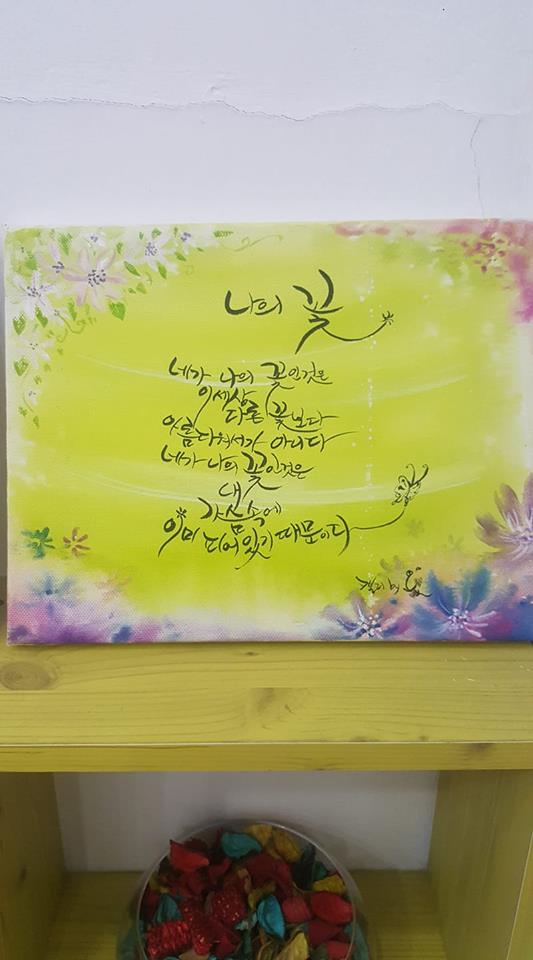 나의 꽃
네가 나의 꽃인것은
이세상
다른 꽃보다
아름다워서가 아니다
네가 나의 꽃인것은
내
가슴속에
이미 피어있기때문이다
by